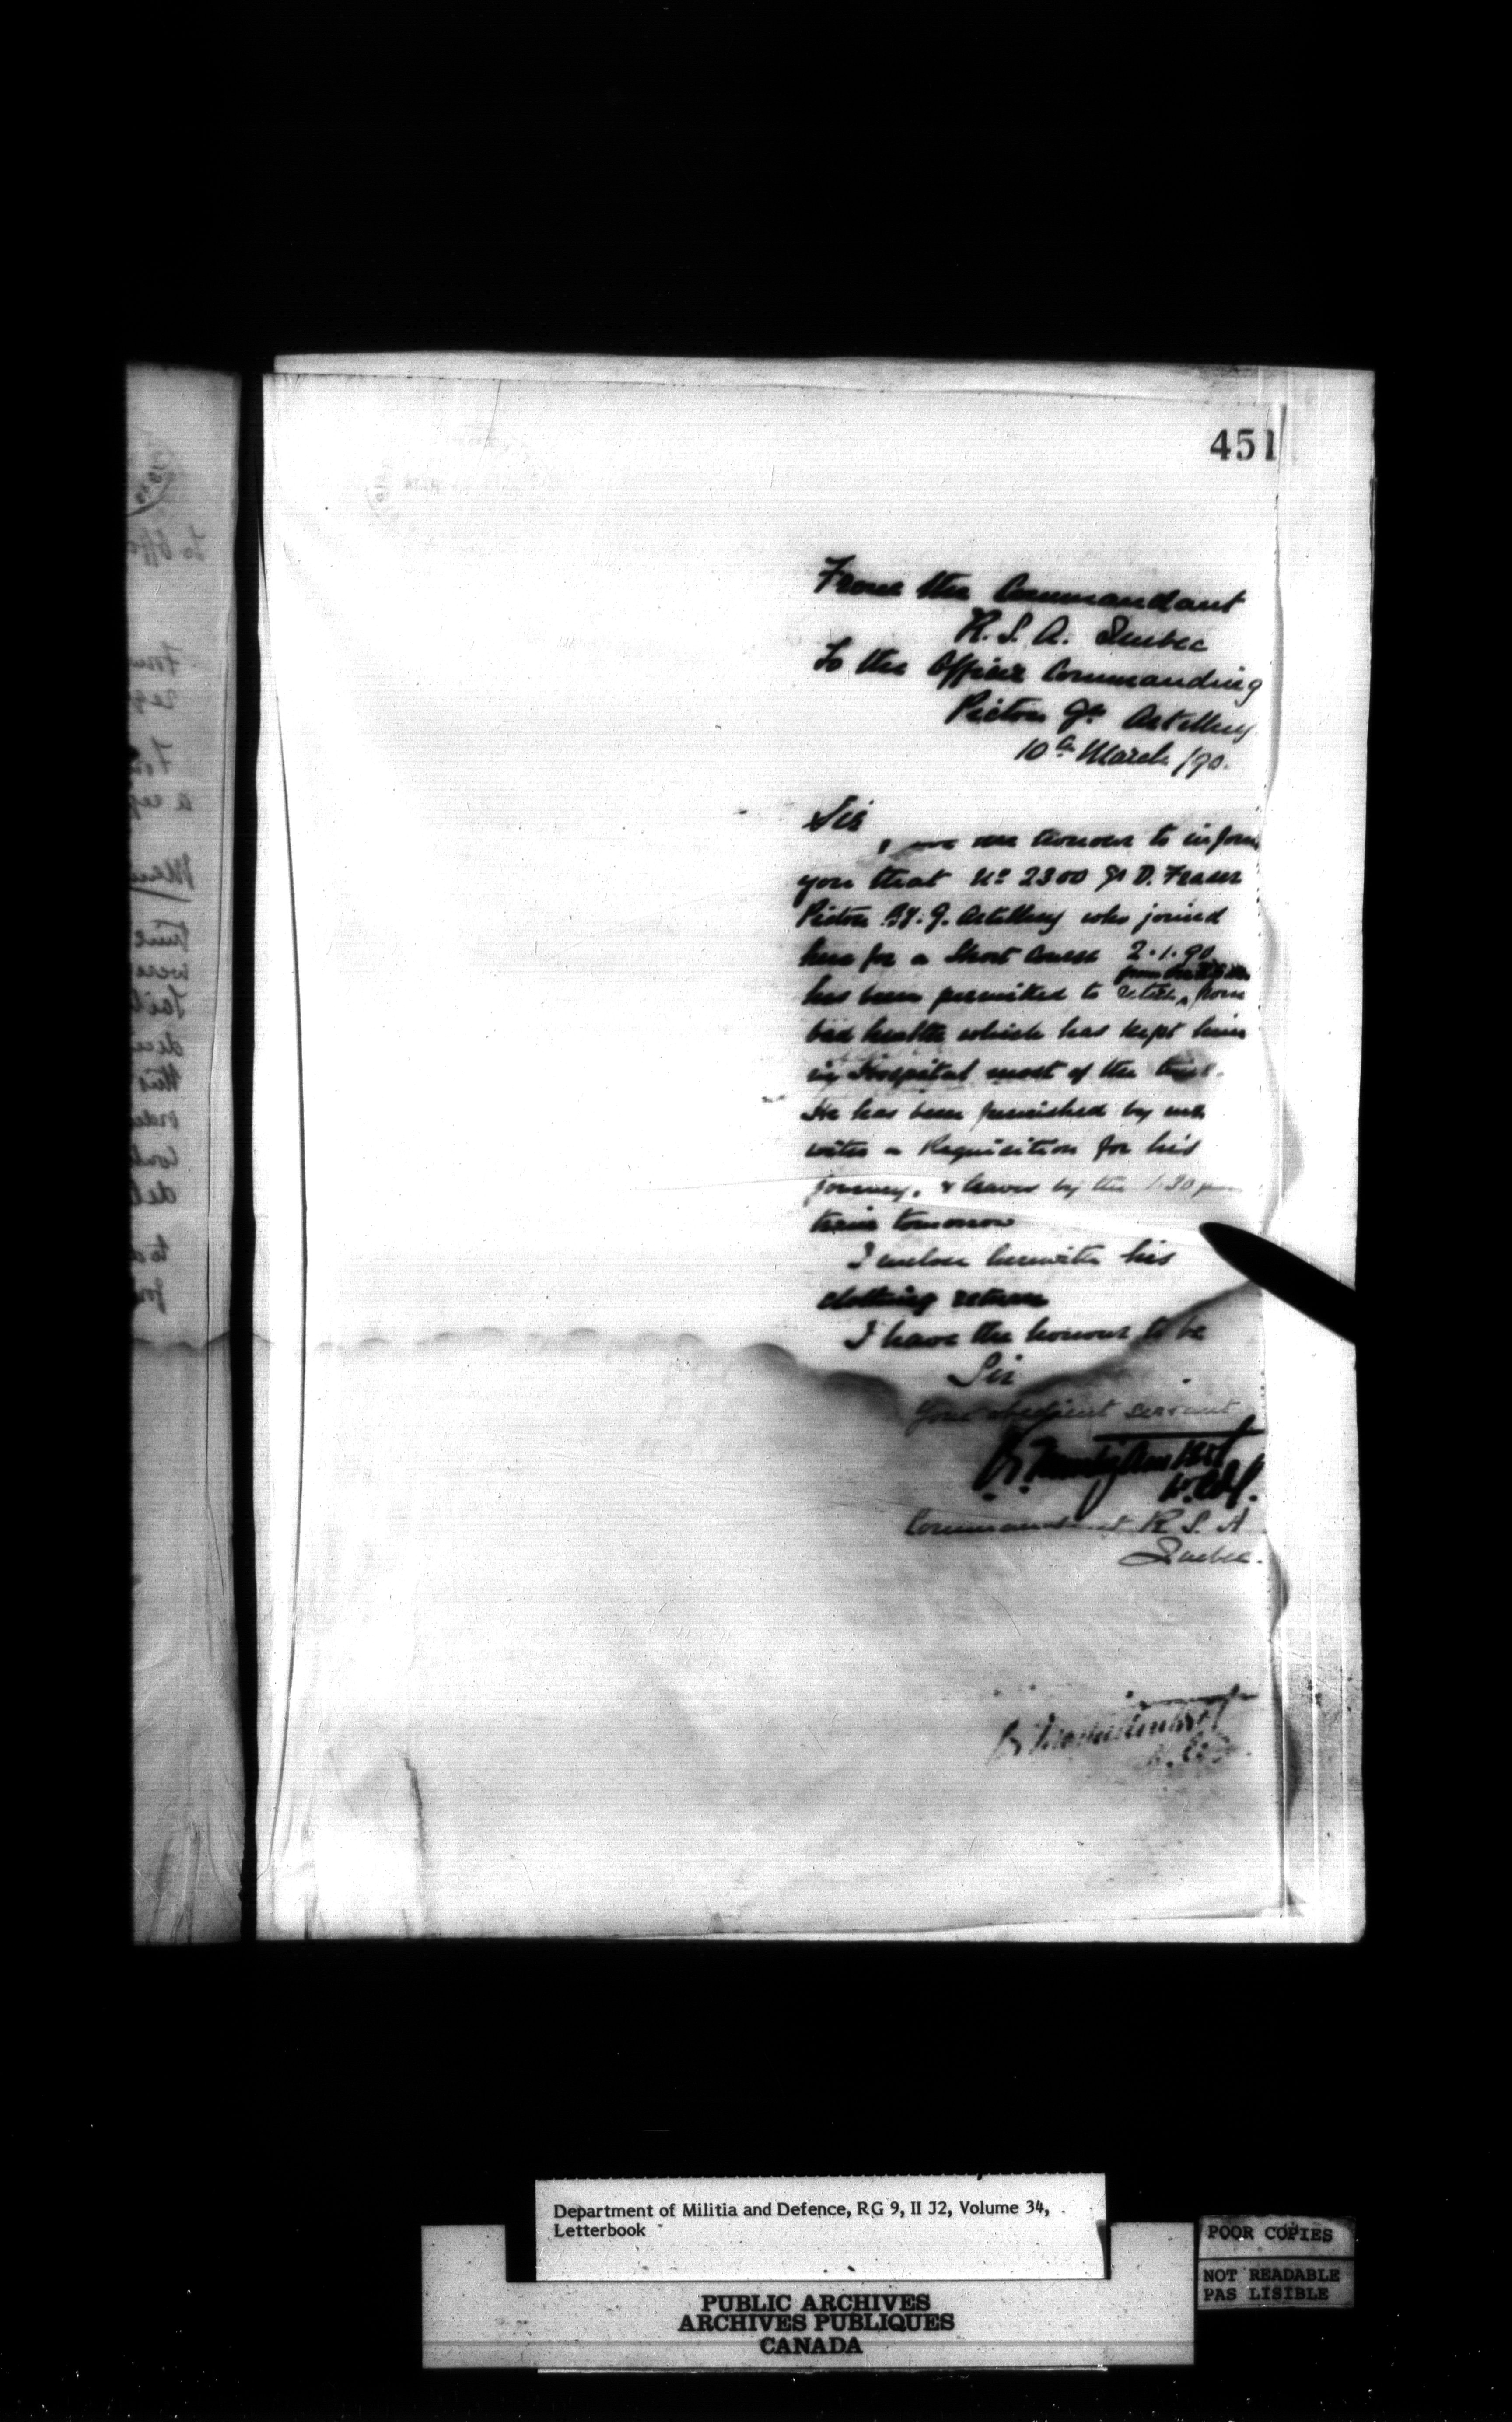 451
From the Commandant
R. S. A. Quebec
To the Officer Commanding
Pictou Gn Artillery
10th March /90.
Sir
the honour to inform
you that No 2300 Gr D. Fraser
Pictou By. G. Artillery who joined
here for a Short Course 2.1.90
has been permitted to retire from
bad health which has kept him
in Hospital most of the time.
He has been furnished by me
with a Requisition for his
journey, & leaves by the 1.30 pm
train tomorrow
I enclose herewith his
clothing return
I have the honour to be
Sir
Your obedient servant
Lt. Col.
Commandant R S A
Quebec.
Department of Militia and Defence, RG 9, II J2, Volume 34,
Letterbook
POOR COPIES
NOT READABLE
PAS LISIBLE
PUBLIC ARCHIVES
ARCHIVES PUBLIQUES
CANADA